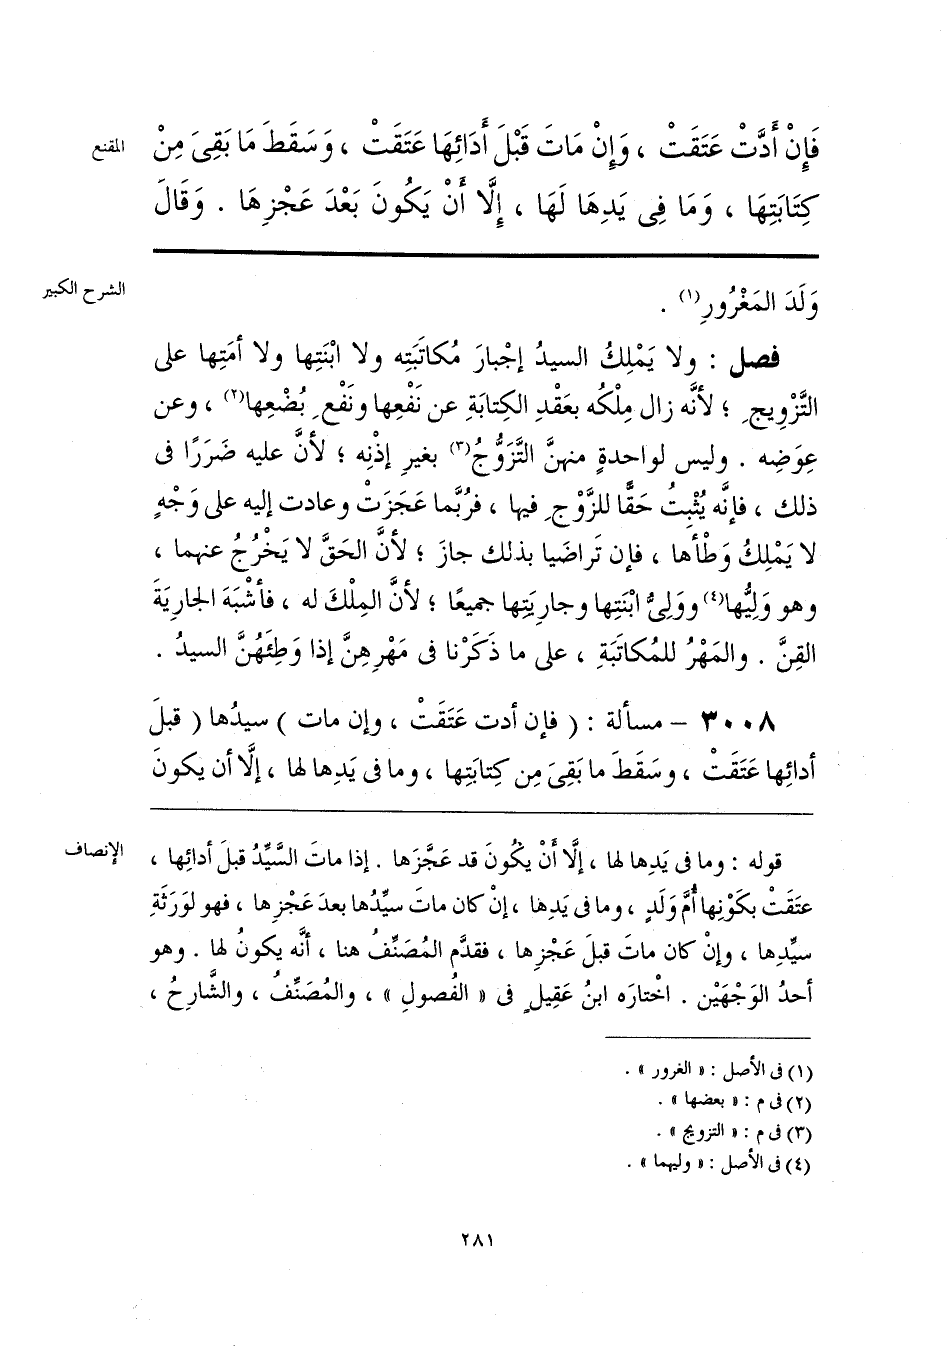 المقنع
فَإِنْ أَدَّتْ عَتَقَتْ ، وَإِنْ مَاتَ قَبْلَ أَدَائِهَا عَتَقَتْ ، وَسَقَطَ مَا بَقِىَ مِنْ
كِتَابَتِهَا ، وَمَا فِى يَدِهَا لَهَا ، إِلَّا أَنْ يَكُونَ بَعْدَ عَجْزِهَا . وَقَالَ
الشرح الكبير
وَلَدَ المَغْرُورِ(١) .
فصل : ولا يَمْلِكُ السيدُ إجْبارَ مُكاتَبَتِه ولا ابْنَتِها ولا أمَتِها على
التَّزْوِيجِ ؛ لأنَّه زال مِلْكُه بعَقْدِ الكِتابَةِ عن نَفْعِها ونَفْعِ بُضْعِها(٢) ، وعن
عِوَضِه . وليس لواحدةٍ منهنَّ التَّزَوُّجُ(٣) بغيرِ إذْنِه ؛ لأنَّ عليه ضَرَرًا فى
ذلك ، فإنَّه يُثْبِتُ حَقًّا للزَّوْجِ فيها ، فرُبَّما عَجَزَتْ وعادت إليه على وَجْهٍ
لا يَمْلِكُ وَطْأها ، فإن تَراضَيا بذلك جازَ ؛ لأنَّ الحَقَّ لا يَخْرُجُ عنهما ،
وهو وَلِيُّها(٤) ووَلِىُّ ابْنَتِها وجارِيَتِها جميعًا ؛ لأنَّ المِلْكَ له ، فأشْبَهَ الجارِيَةَ
القِنَّ . والمَهْرُ للمُكاتَبَةِ ، على ما ذَكَرْنا فى مَهْرِهِنَّ إذا وَطِئَهُنَّ السيدُ .
٣٠٠٨ – مسألة : ( فإن أدت عَتَقَتْ ، وإن مات ) سيدُها ( قبلَ
أدائِها عَتَقَتْ ، وسَقَطَ ما بَقِىَ مِن كِتابَتِها ، وما فى يَدِها لها ، إلَّا أن يكونَ
الإنصاف
قوله : وما فى يَدِها لها ، إلَّا أَنْ يكُونَ قد عَجَّزَها . إذا ماتَ السَّيِّدُ قبلَ أدائِها ،
عتَقَتْ بكَوْنِها أُمَّ وَلَدٍ ، وما فى يَدِها ، إنْ كان ماتَ سيِّدُها بعدَ عَجْزِها ، فهو لوَرَثَةِ
سيِّدِها ، وإنْ كان ماتَ قبلَ عَجْزِها ، فقدَّم المُصَنِّفُ هنا ، أنَّه يكونُ لها . وهو
أحدُ الوَجْهَيْن . اخْتارَه ابنُ عَقِيلٍ فى « الفُصولِ » ، والمُصَنِّفُ ، والشَّارِحُ ،
(١) فى الأصل : « الغرور » .
(٢) فى م : « بعضها » .
(٣) فى م : « التزويج » .
(٤) فى الأصل : « وليهما » .
٢٨١